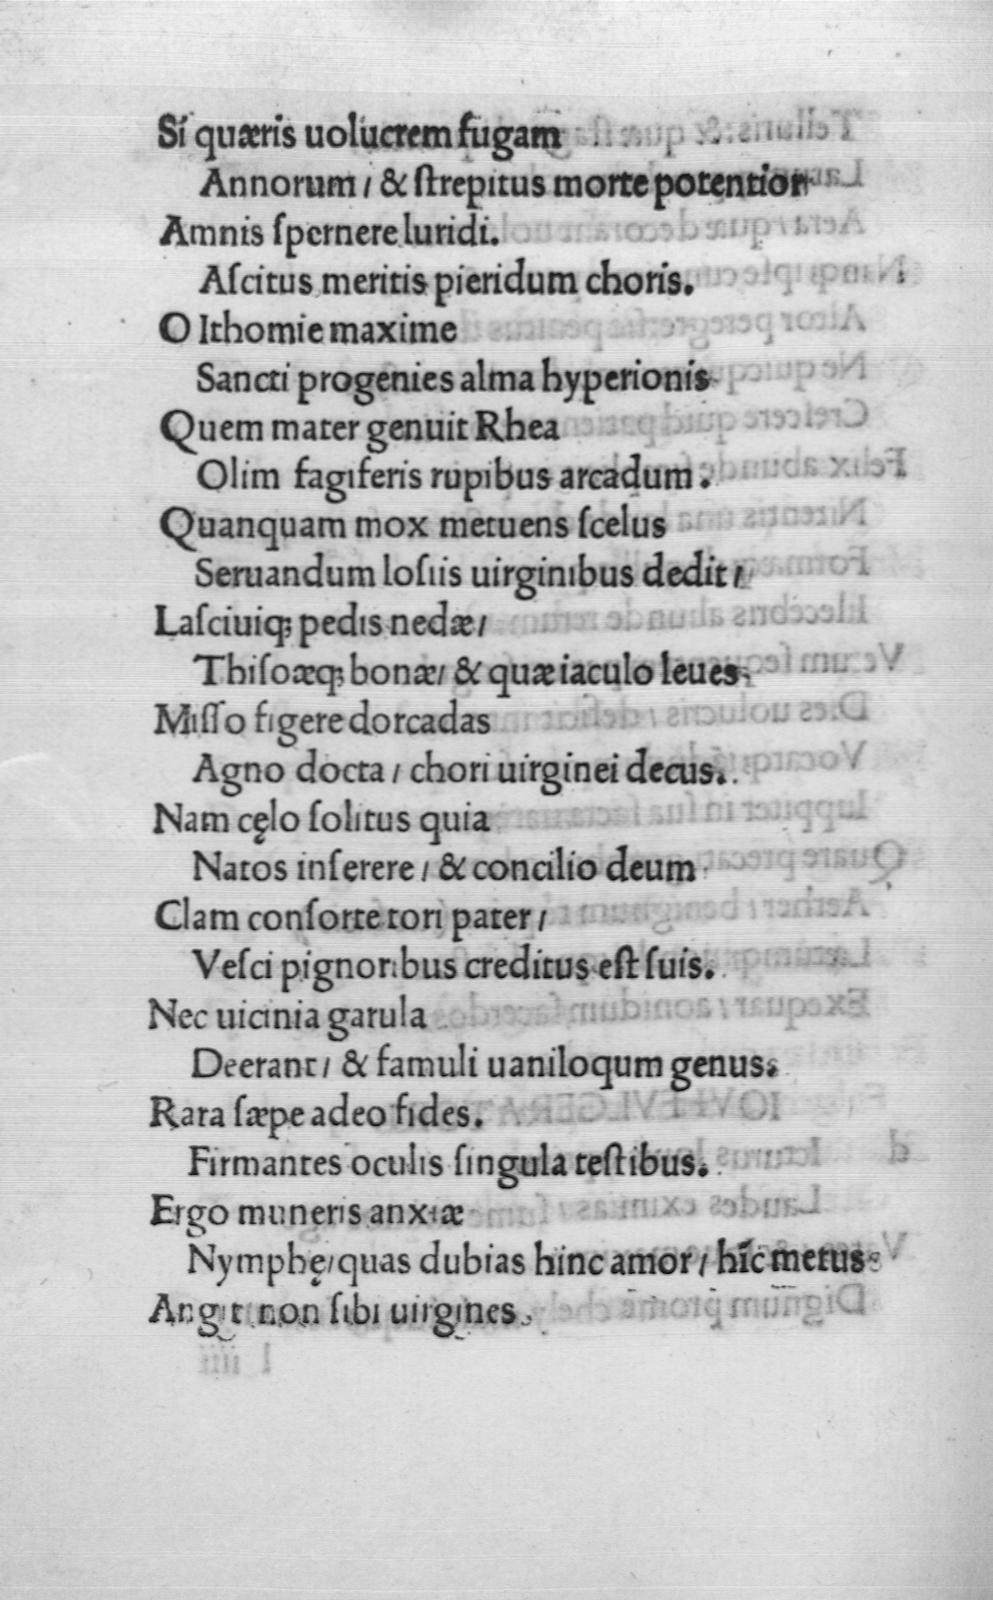 Si quæris uolucrem fugam
Annorum / & ſtrepitus morte potentior
Amnis ſpernere luridi.
Aſcitus meritis pieridum choris.
O Ithomie maxime
Sancti progenies alma hyperionis
Quem mater genuit Rhea
Olim fagiferis rupibus arcadum.
Quanquam mox metuens ſcelus
Seruandum loſiis uirginibus dedit /
Laſciuiq; pedis nedæ /
Thiſoæq; bonæ / & quæ iaculo leues
Miſſo figere dorcadas
Agno docta / chori uirginei decus.
Nam cęlo ſolitus quia
Natos inſerere / & concilio deum
Clam conſorte tori pater /
Veſci pignoribus creditus eſt ſuis.
Nec uicinia garula
Deerant / & famuli uaniloqum genus.
Rara ſæpe adeo fides.
Firmantes oculis ſingula teſtibus.
Ergo muneris anxiæ
Nymphę / quas dubias hinc amor / hic metus
Angit non ſibi uirgines